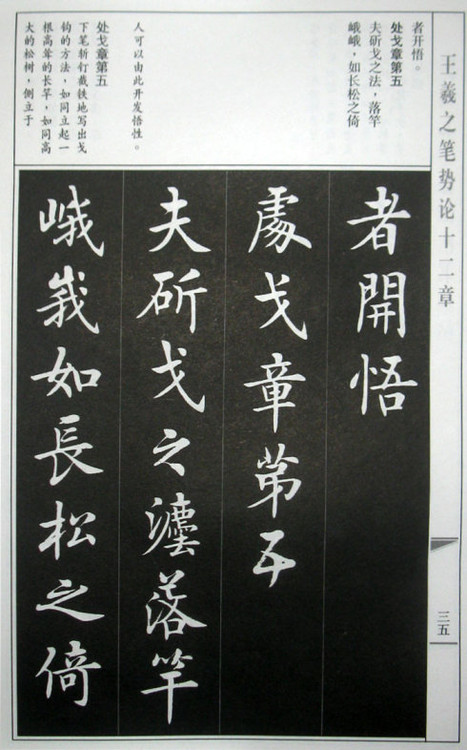 王羲之笔势论十二章
三五
者开悟。
处戈章第五
夫斫戈之法，落竿
峨峨，如长松之倚
人可以由此开发悟性。
处戈章第五
下笔斩钉截铁地写出戈
钩的方法，如同立起一
根高耸的长竿，如同高
大的松树，倒立于
者開悟
處戈章第五
夫斫戈之灋落竿
峨峩如長松之倚